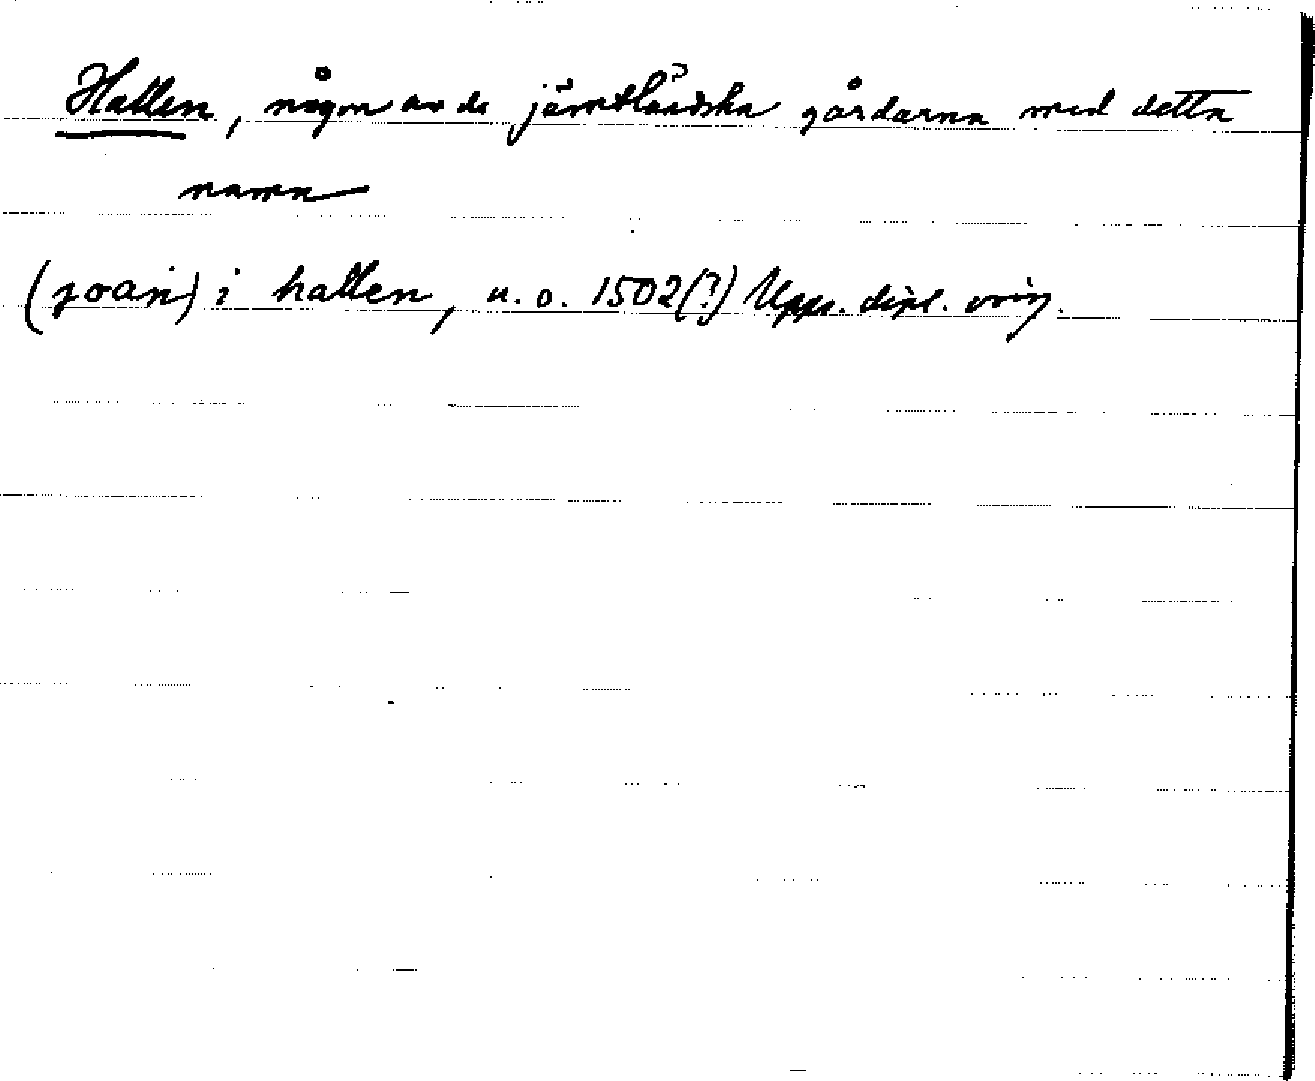 Hallen, någon av de jämtländska gårdarna med detta
namn
(joan) i hallen, u. o. 1502(?) Upps. dipl. orig.